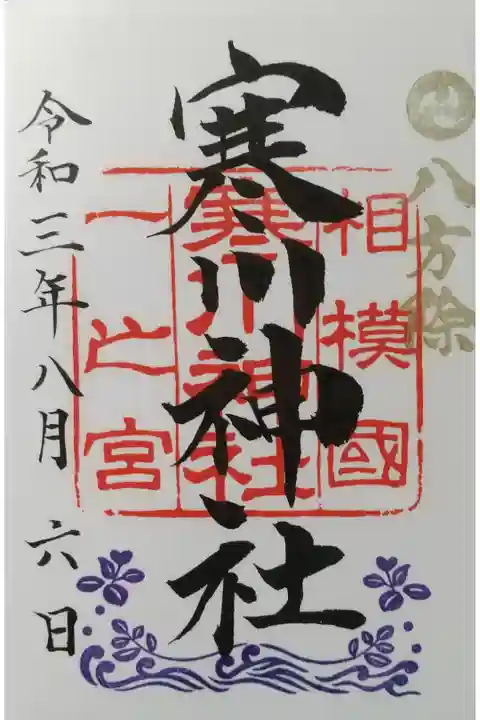 八方除
相模國
寒川神社
一之宮
寒川神社
令和三年八月六日